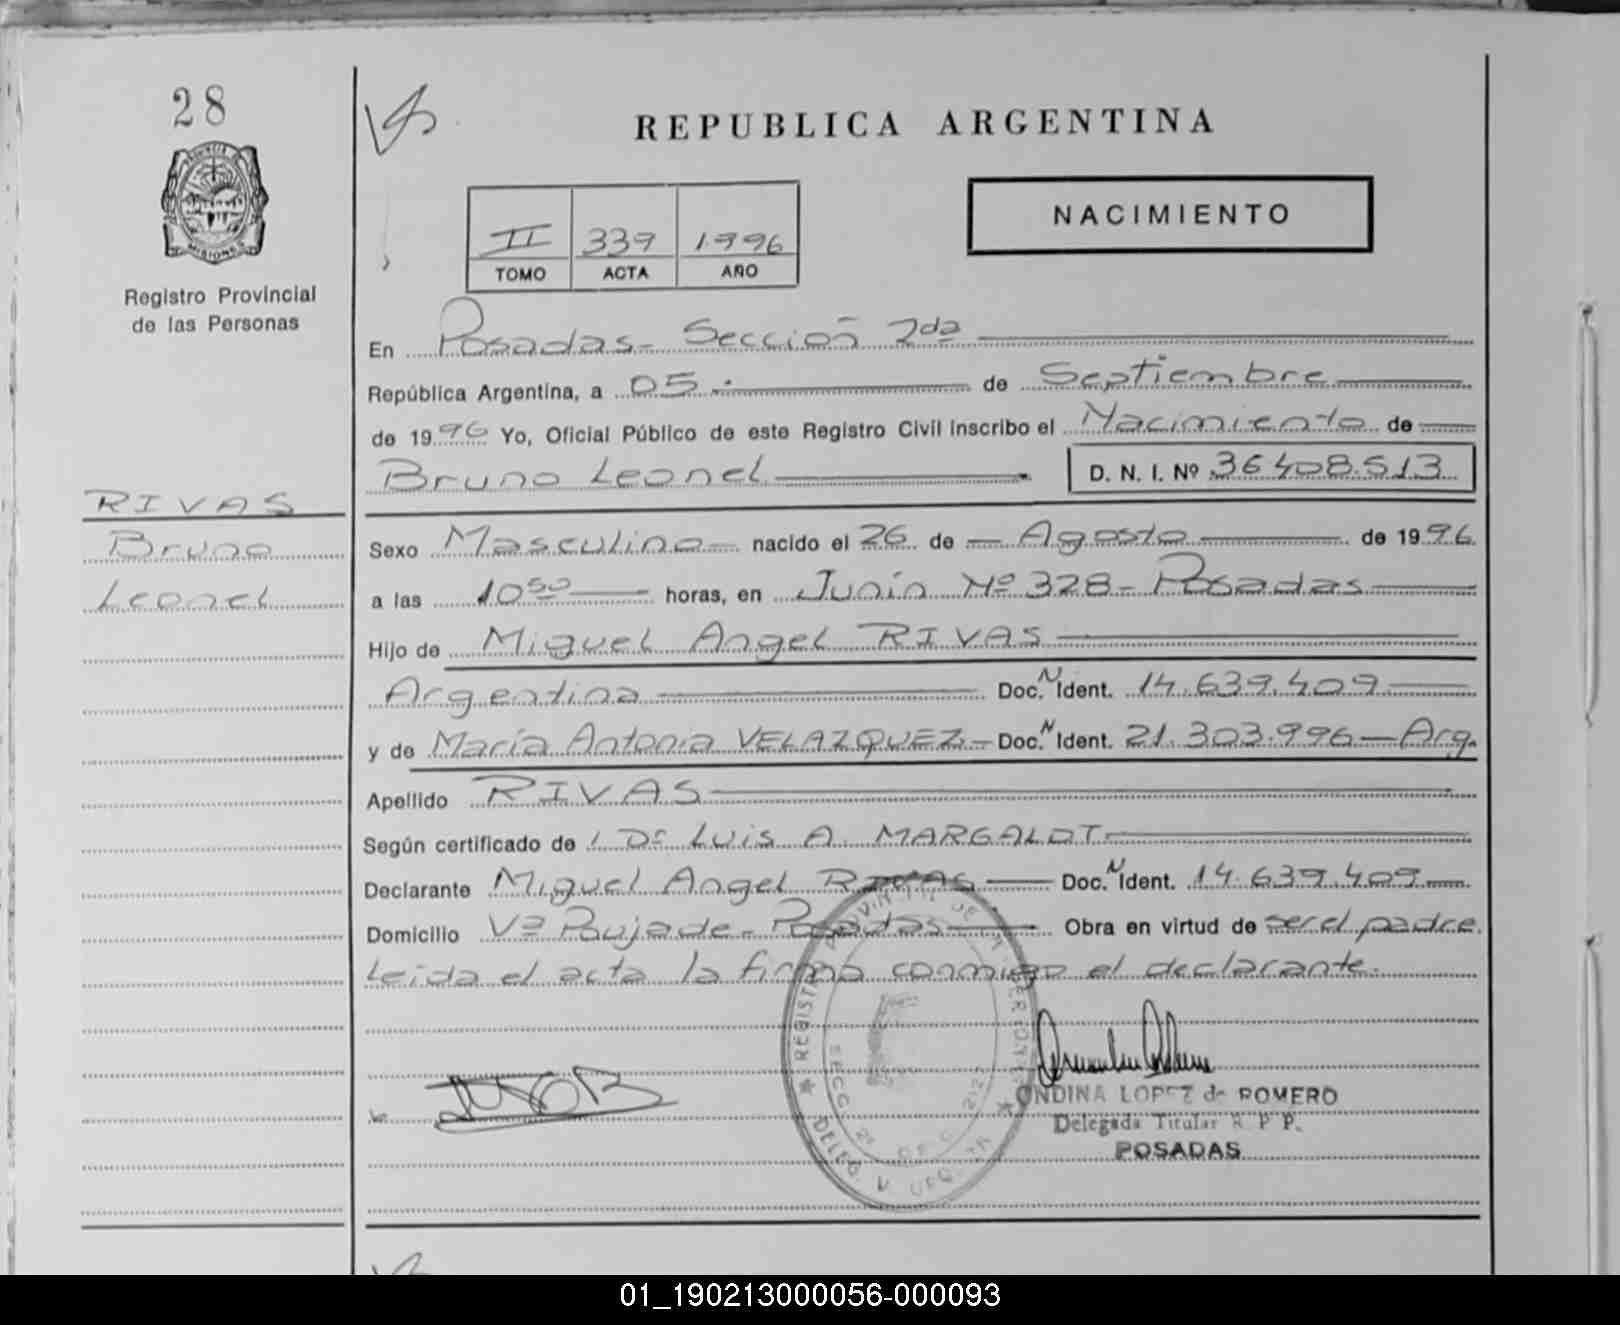 28
PROVINCIA DE
MISIONES
Registro Provincial
de las Personas
RIVAS
Bruno
Leonel
REPUBLICA ARGENTINA
II 339 1996
TOMO ACTA AÑO
NACIMIENTO
En Posadas - Sección 2da
República Argentina, a 05 de Septiembre
de 1996 Yo, Oficial Público de este Registro Civil inscribo el Nacimiento de
Bruno Leonel D. N. I. Nº 36408.513
Sexo Masculino nacido el 26 de Agosto de 1996
a las 10 50 horas, en Junín Nº 328 - Posadas
Hijo de Miguel Angel RIVAS
Argentina Doc. N Ident. 14.639.409
y de María Antonia VELAZQUEZ - Doc. N Ident. 21.303.996 - Arg.
Apellido RIVAS
Según certificado de l Dr Luis A. MARGALOT
Declarante Miguel Angel RIVAS Doc. N Ident. 14.639.409
Domicilio Vª Poujade - Posadas Obra en virtud de ser el padre.
Leida el acta la firma conmigo el declarante.
ONDINA LOPEZ de ROMERO
Delegada Titular R. P. P.
POSADAS
01_190213000056-000093